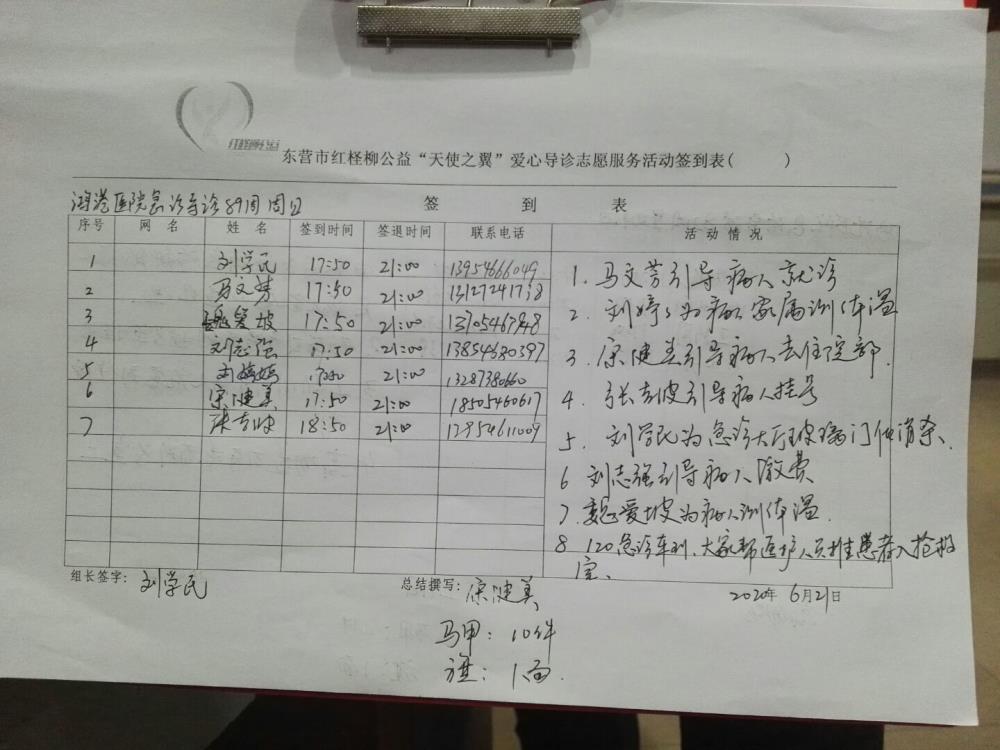 红柽柳公益
东营市红柽柳公益“天使之翼”爱心导诊志愿服务活动签到表(　　)
鸿港医院急诊导诊89周周日
签 到 表
序号 网名 姓名 签到时间 签退时间 联系电话 活动情况
1 刘学民 17:50 21:00 13954666049
2 马文芳 17:50 21:00
3 魏爱坡 17:50 21:00
4 刘志强 17:50 21:00 13854680397
5 刘婷婷 1750 21:00 13287380660
6 宋健美 17:50 21:00 18505460617
7 张吉波 18:50 21:00
1. 马文芳引导病人就诊
2. 刘婷婷为病人家属测体温
3. 宋健美引导病人去住院部.
4. 张吉波引导病人挂号
5. 刘学民为急诊大厅玻璃门做消杀、
6 刘志强引导病人缴费
7. 魏爱坡为病人测体温.
8 120急诊车到、大家帮医护人员推患者入抢救
室、
组长签字: 刘学民 总结撰写: 宋健美 2020年 6月21日
马甲: 10件
旗: 1面.